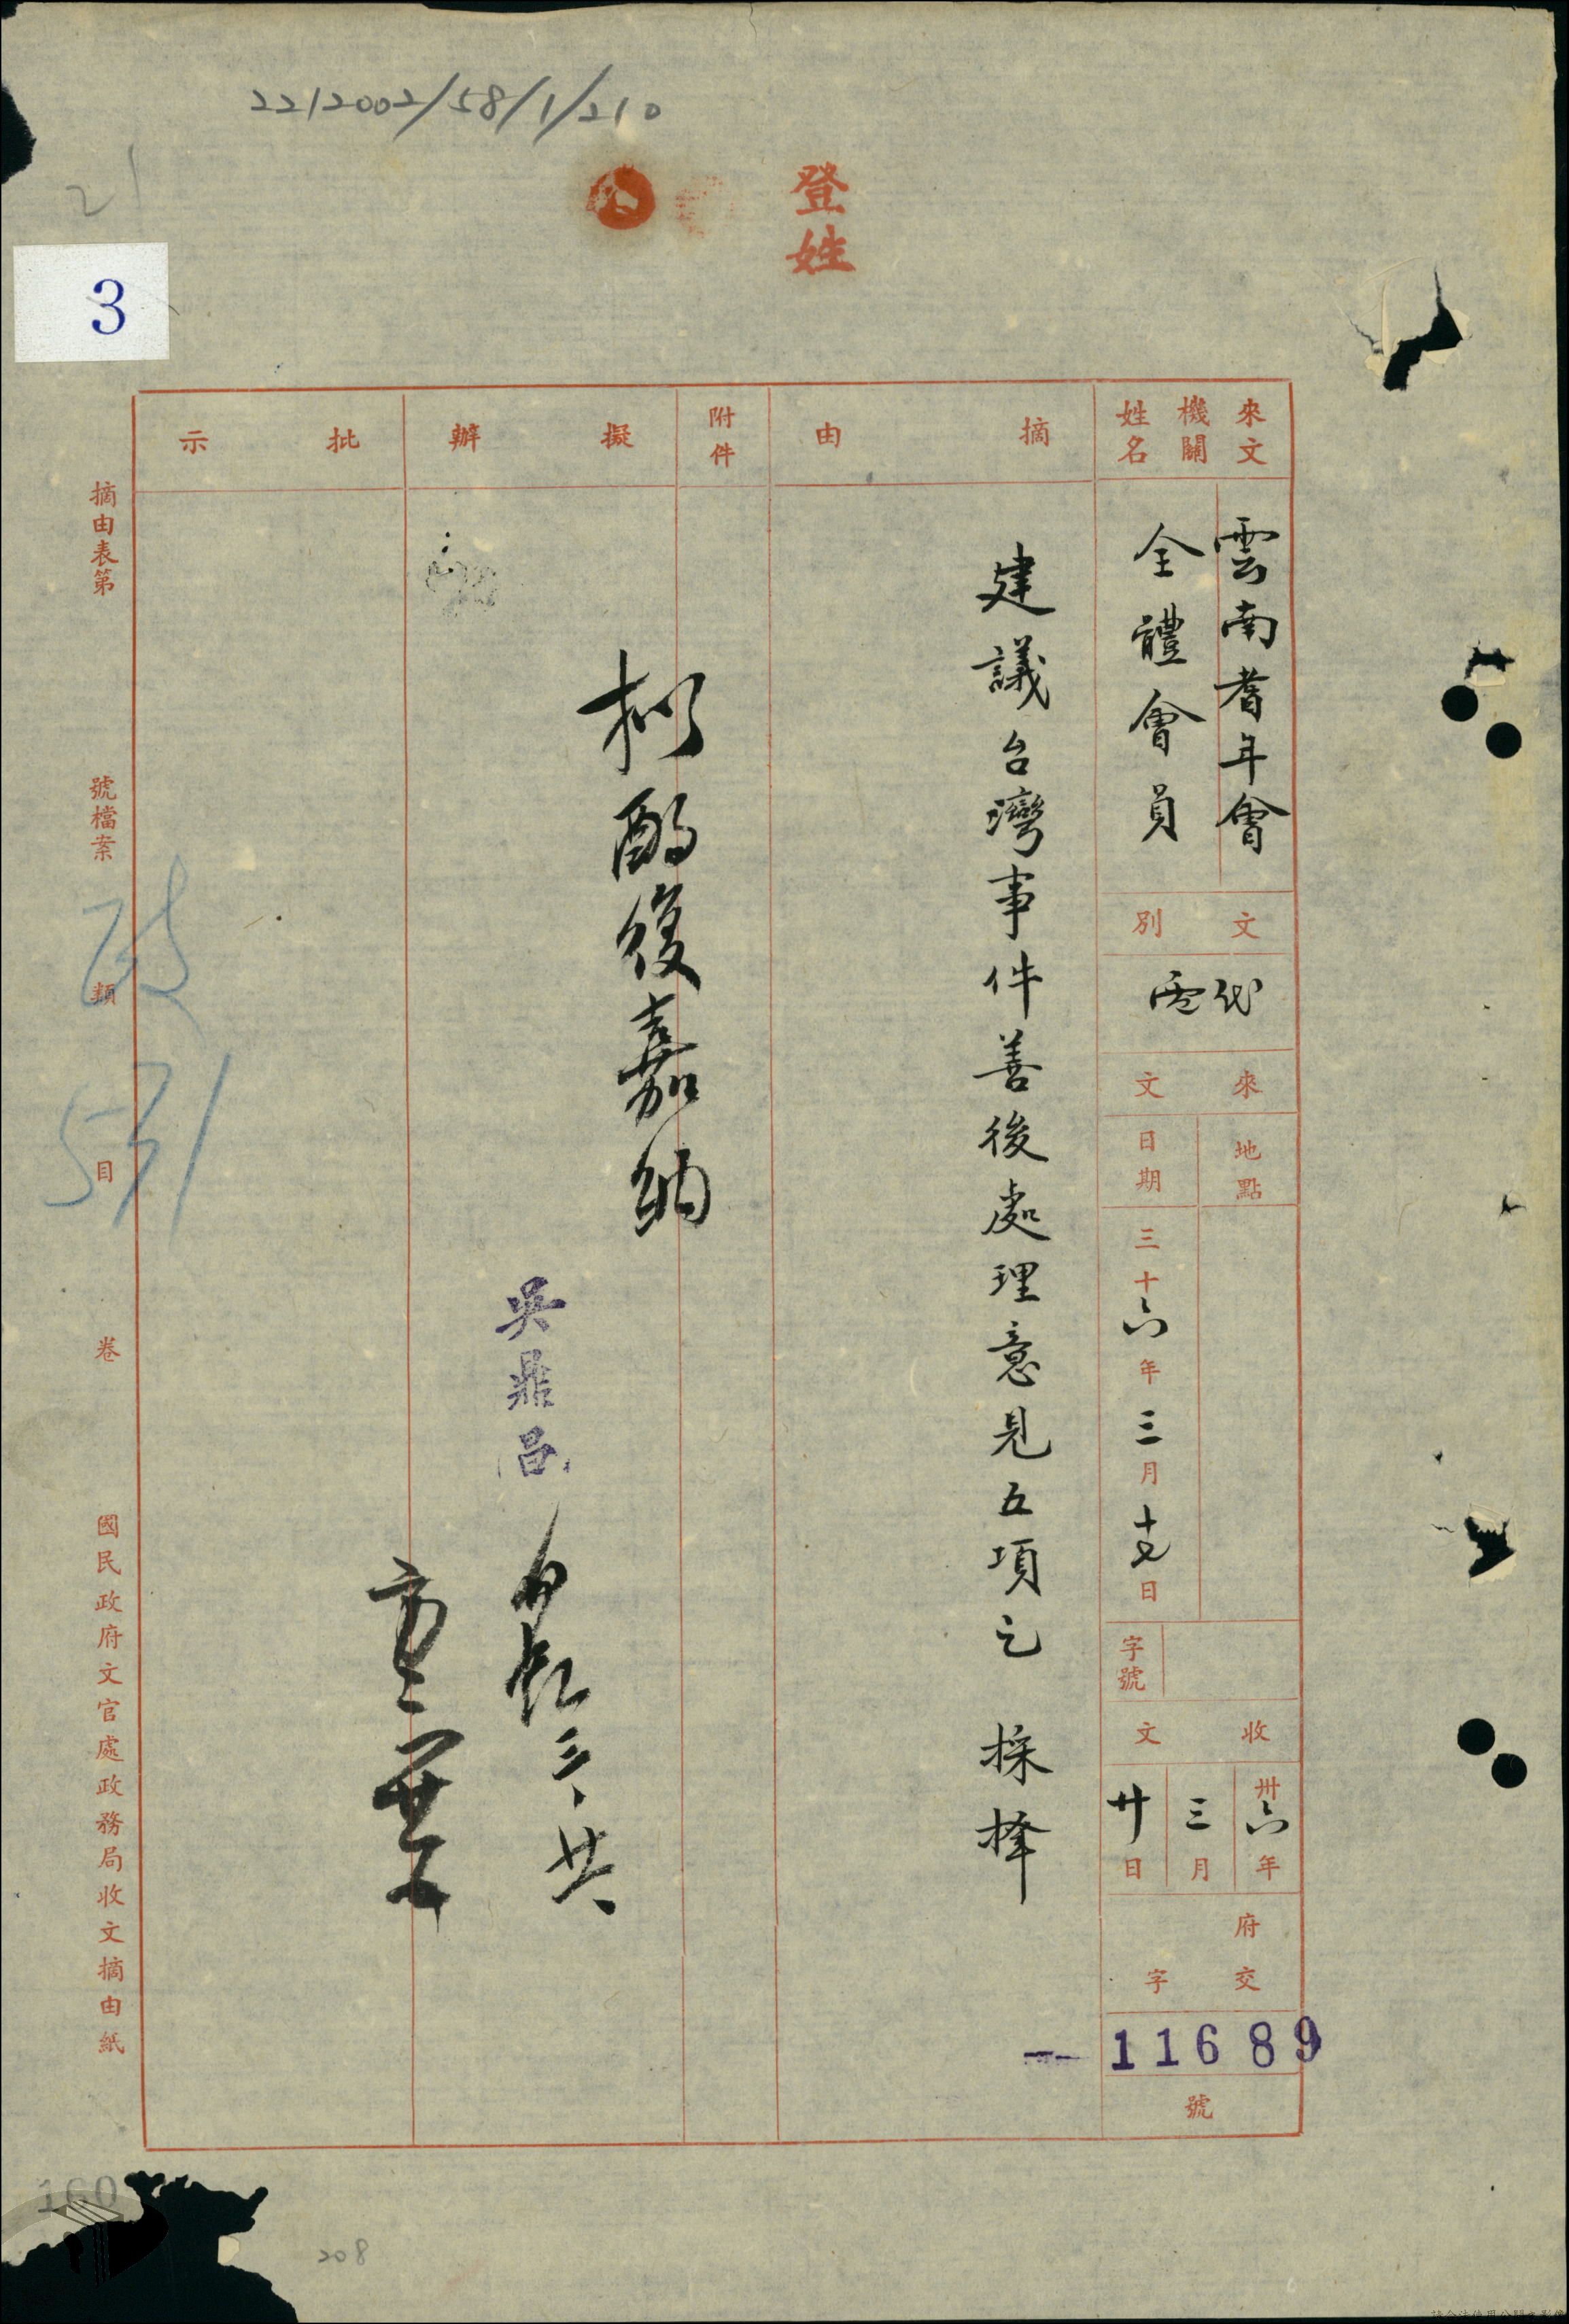 2212002/58/1/210
21
登姓
3
來文機關姓名
雲南耆年會
全體會員
文別
代電
來文
地點
日期
三十六年三月十七日
字號
收文
卅六年
三月
廿日
府交字
11689
號
摘由
建議台灣事件善後處理意見五項乞 採擇
附件
擬辦
擬酌復嘉納
吳鼎昌
三、廿六
批示
摘由表第 號檔案 類 目 卷 國民政府文官處政務局收文摘由紙
531
160
208